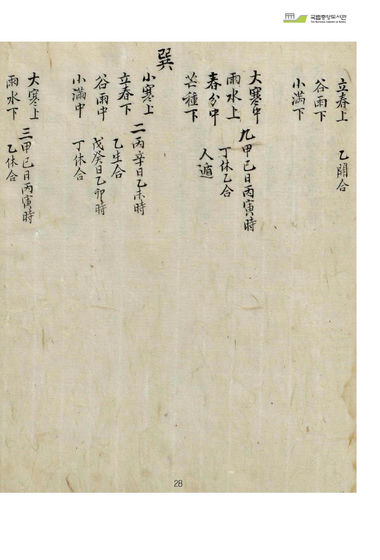 국립중앙도서관
立春上 乙開合
谷雨下
小滿下
大寒中 九甲己日丙寅時
雨水上 丁休乙合
春分中 人遁
芒種下
巽
小寒上 二丙辛日乙未時
立春下 乙生合
谷雨中 戊癸日乙卯時
小滿中 丁休合
大寒上 三甲己日丙寅時
雨水下 乙休合
28